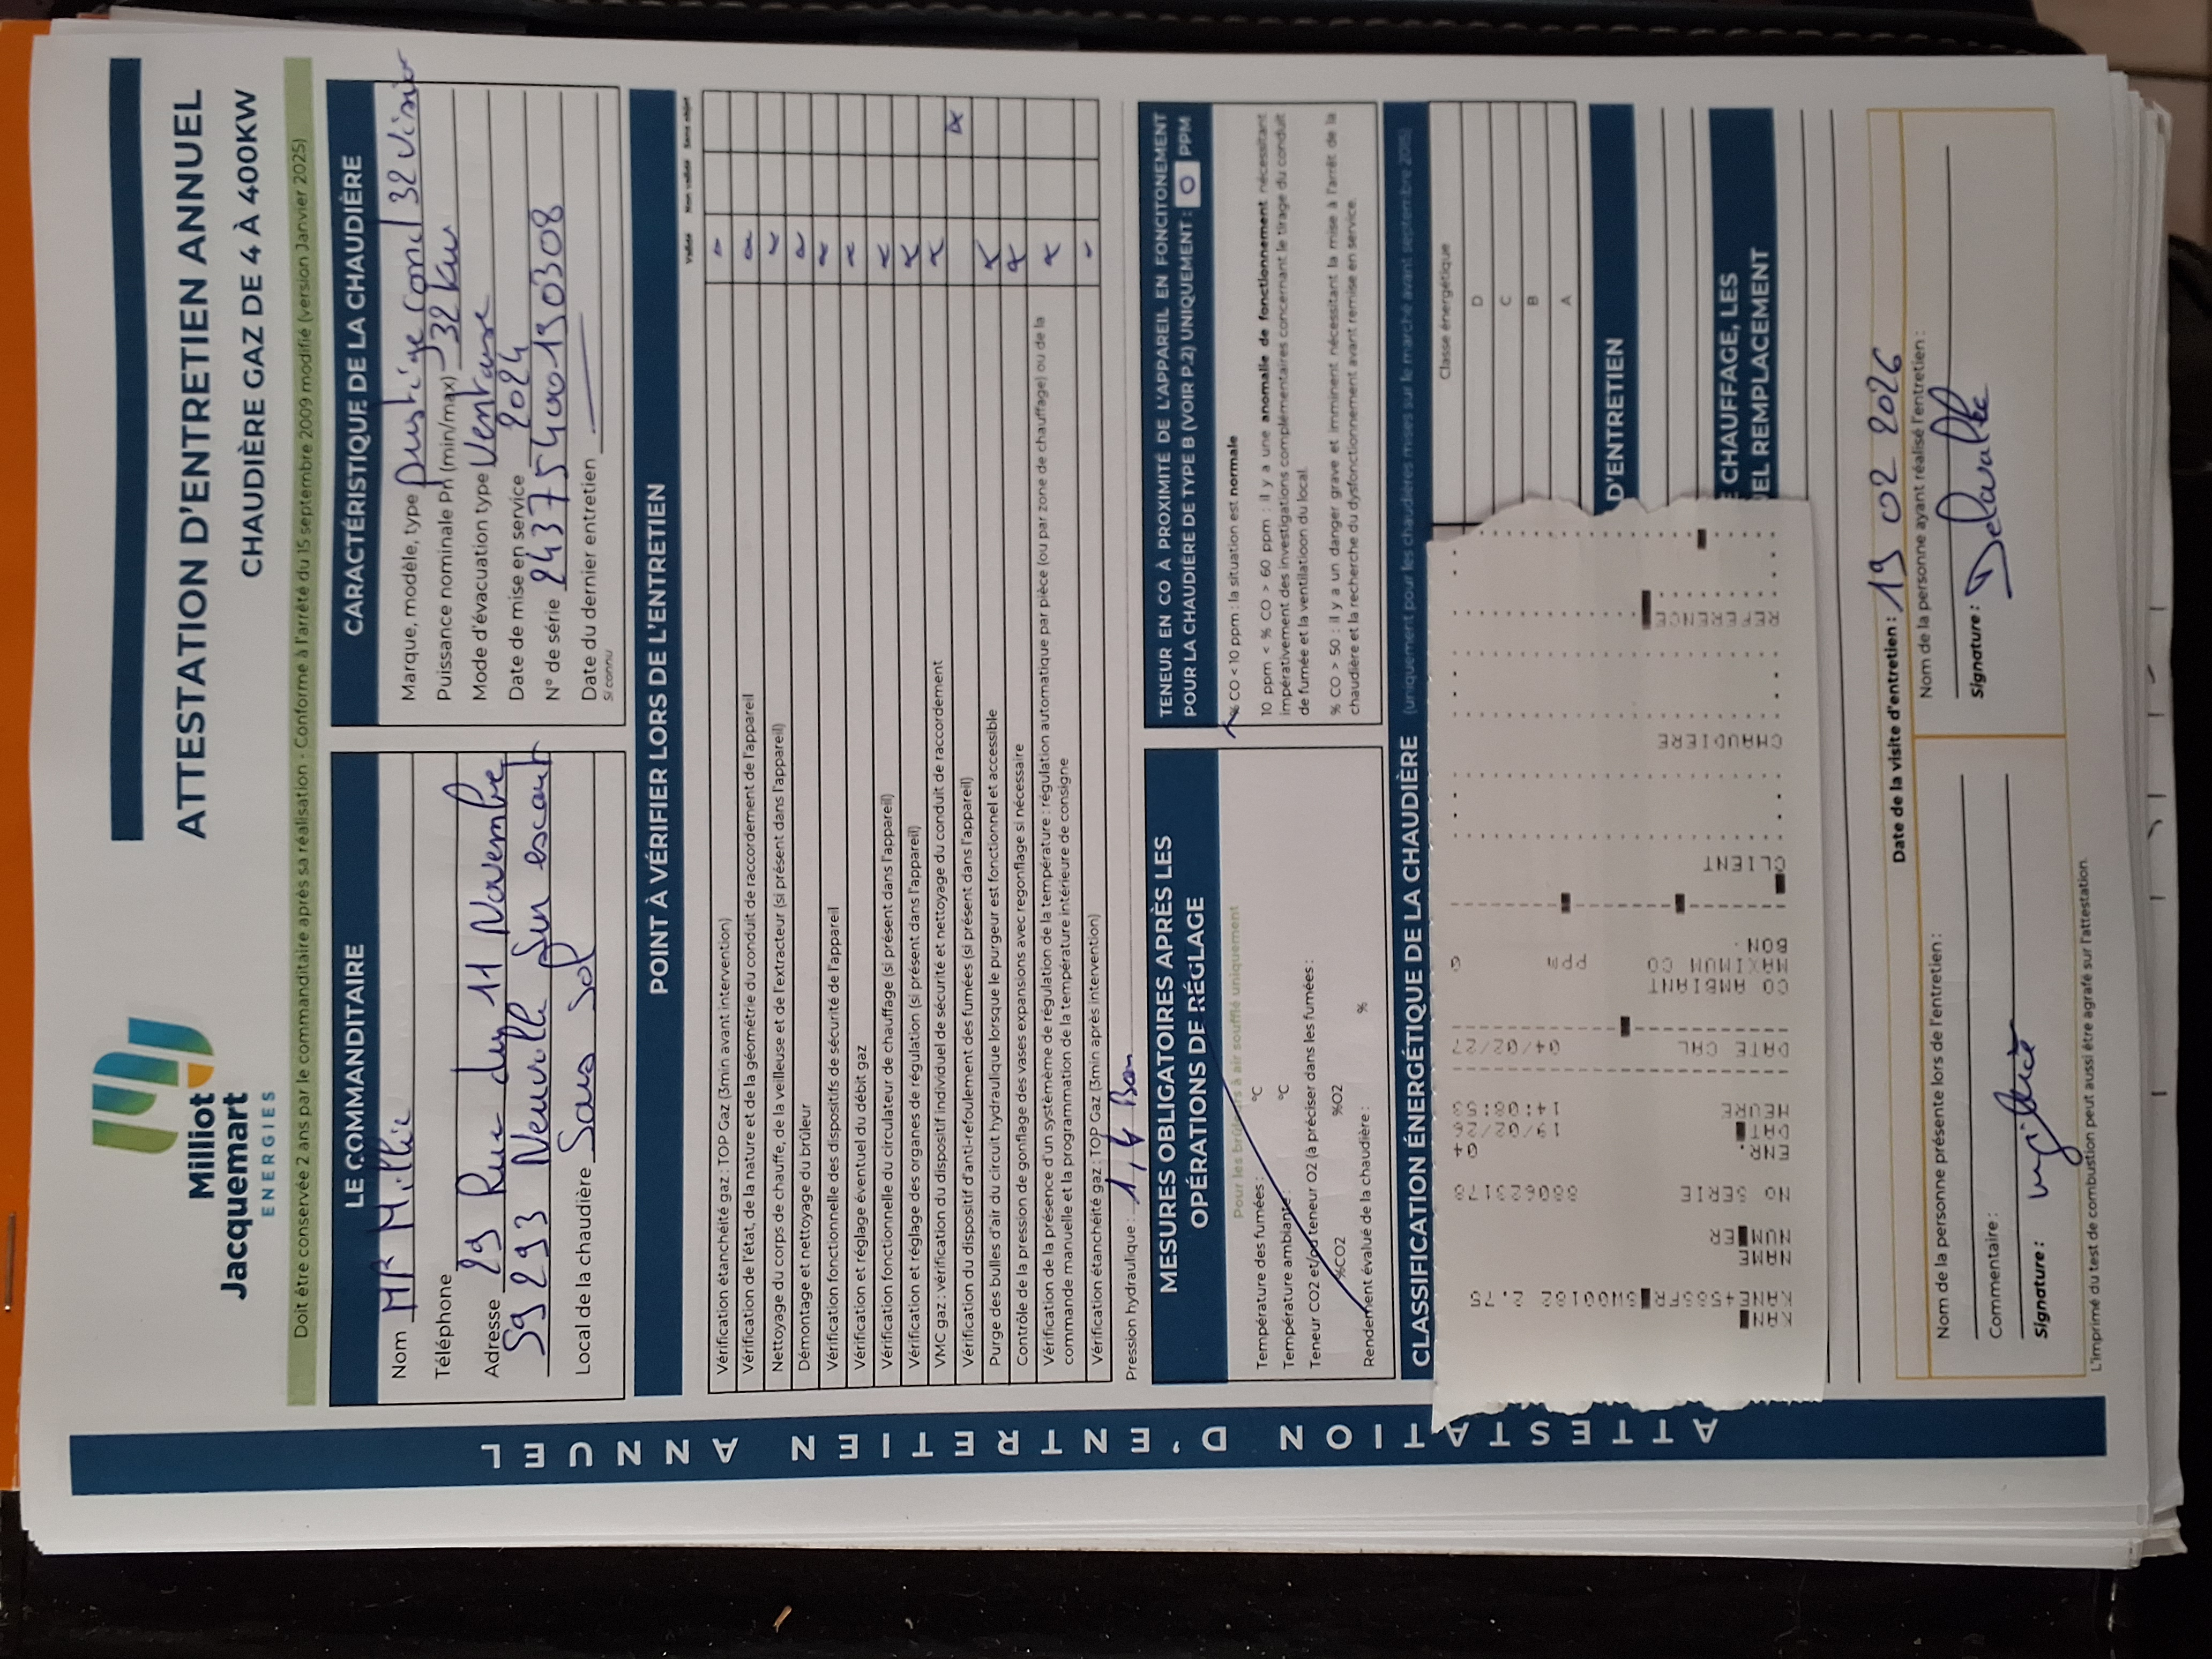 Milliot
Jacquemart
ENERGIES
ATTESTATION D'ENTRETIEN ANNUEL
CHAUDIÈRE GAZ DE 4 À 400KW
Doit être conservée 2 ans par le commanditaire après sa réalisation - Conforme à l'arrêté du 15 septembre 2009 modifié (version Janvier 2025)
ATTESTATION D'ENTRETIEN ANNUEL
LE COMMANDITAIRE
Nom Mr Millie
Téléphone
Adresse 29 Rue du 11 Novembre
59293 Neuville Sur escaut
Local de la chaudière Sous Sol
CARACTÉRISTIQUE DE LA CHAUDIÈRE
Marque, modèle, type prestige cond 32 Visio
Puissance nominale Pn (min/max) 32 kw
Mode d'évacuation type Ventouse
Date de mise en service 2024
N° de série
Date du dernier entretien
Si connu
POINT À VÉRIFIER LORS DE L'ENTRETIEN
Validé Non validé Sans objet
Vérification étanchéité gaz : TOP Gaz (3min avant intervention)
Vérification de l'état, de la nature et de la géométrie du conduit de raccordement de l'appareil
Nettoyage du corps de chauffe, de la veilleuse et de l'extracteur (si présent dans l'appareil)
Démontage et nettoyage du brûleur
Vérification fonctionnelle des dispositifs de sécurité de l'appareil
Vérification et réglage éventuel du débit gaz
Vérification fonctionnelle du circulateur de chauffage (si présent dans l'appareil)
Vérification et réglage des organes de régulation (si présent dans l'appareil)
VMC gaz : vérification du dispositif individuel de sécurité et nettoyage du conduit de raccordement
Vérification du dispositif d'anti-refoulement des fumées (si présent dans l'appareil)
Purge des bulles d'air du circuit hydraulique lorsque le purgeur est fonctionnel et accessible
Contrôle de la pression de gonflage des vases expansions avec regonflage si nécessaire
Vérification de la présence d'un systèmème de régulation de la température : régulation automatique par pièce (ou par zone de chauffage) ou de la
commande manuelle et la programmation de la température intérieure de consigne
Vérification étanchéité gaz : TOP Gaz (3min après intervention)
Pression hydraulique : 1,4 Bar
MESURES OBLIGATOIRES APRÈS LES
OPÉRATIONS DE RÉGLAGE
Pour les brûleurs à air soufflé uniquement
Température des fumées : °C
Température ambiante : °C
Teneur CO2 et/ou teneur O2 (à préciser dans les fumées :
%CO2 %O2
Rendement évalué de la chaudière : %
TENEUR EN CO À PROXIMITÉ DE L'APPAREIL EN FONCITONEMENT
POUR LA CHAUDIÈRE DE TYPE B (VOIR P.2) UNIQUEMENT : 0 PPM
% CO < 10 ppm : la situation est normale
10 ppm < % CO > 60 ppm : il y a une anomalie de fonctionnement nécessitant
impérativement des investigations complémentaires concernant le tirage du conduit
de fumée et la ventilatioon du local.
% CO > 50 : il y a un danger grave et imminent nécessitant la mise à l'arrêt de la
chaudière et la recherche du dysfonctionnement avant remise en service.
CLASSIFICATION ÉNERGÉTIQUE DE LA CHAUDIÈRE (uniquement pour les chaudières mises sur le marché avant septembre 2015)
Classe énergétique
D
C
B
A
D'ENTRETIEN
CHAUFFAGE, LES
EL REMPLACEMENT
KAN
KANE458SFR SW00182 2.75
NAME
NUM ER
NO SERIE 880623178
ENR. 04
DAT 19/02/26
HEURE 14:08:53
DATE CAL 04/02/27
CO AMBIANT
MAXIMUM CO PPM 0
BON
CLIENT
CHAUDIERE
REFERENCE
Date de la visite d'entretien : 19 02 2026
Nom de la personne présente lors de l'entretien :
Commentaire :
Signature :
Nom de la personne ayant réalisé l'entretien :
Signature : Delvallée
L'imprimé du test de combustion peut aussi être agrafé sur l'attestation.